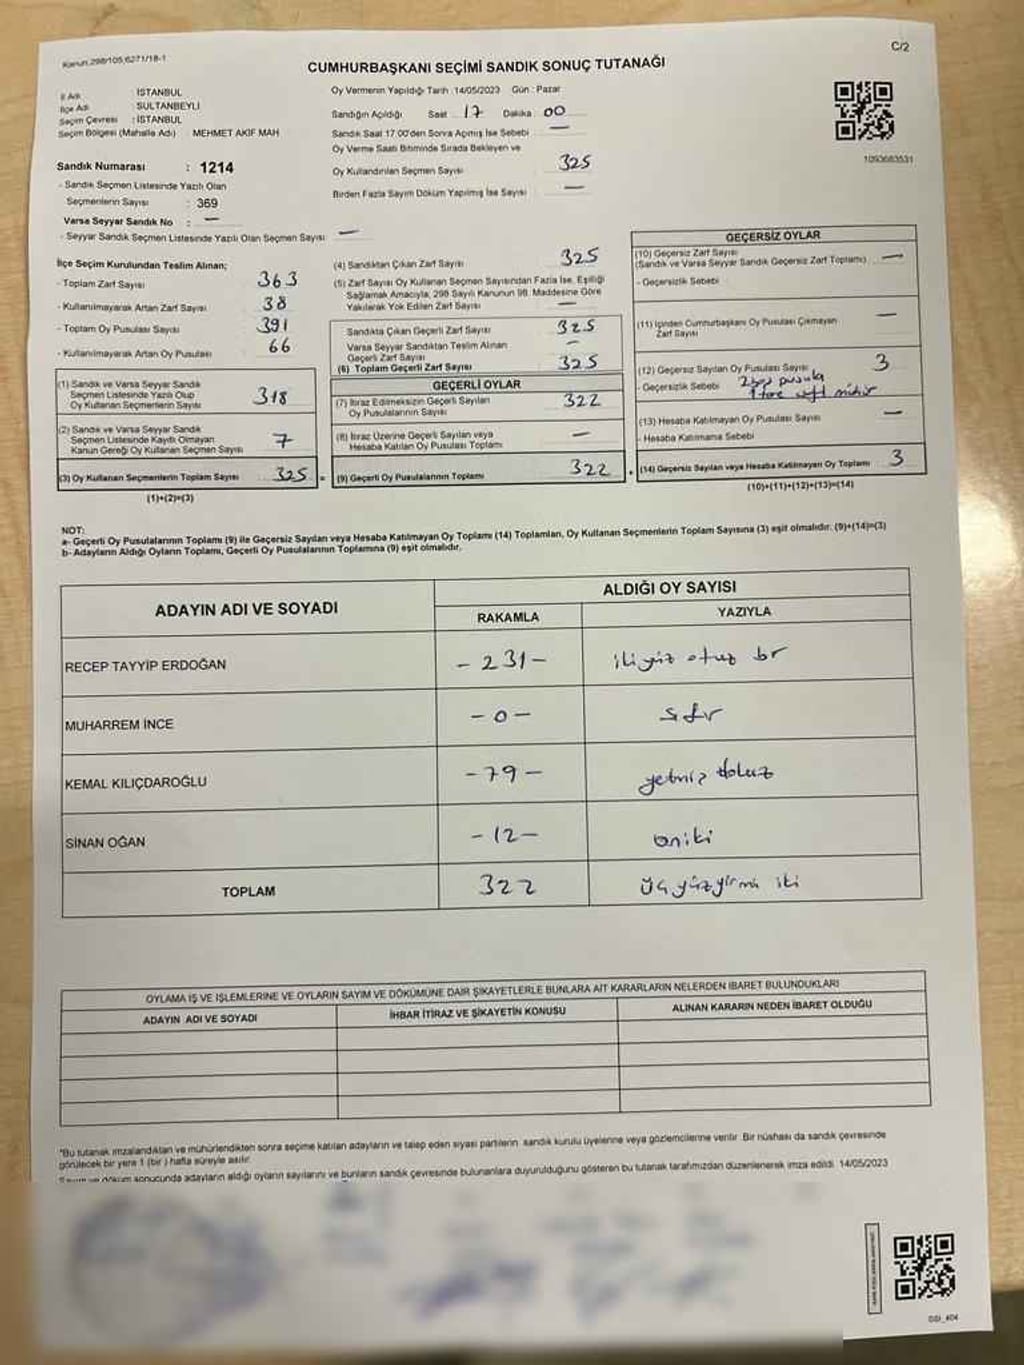 Kanun 298/105,6271/18-1
C/2
CUMHURBAŞKANI SEÇİMİ SANDIK SONUÇ TUTANAĞI
İl Adı : İSTANBUL
İlçe Adı : SULTANBEYLİ
Seçim Çevresi : İSTANBUL
Seçim Bölgesi (Mahalle Adı) MEHMET AKİF MAH
Sandık Numarası : 1214
- Sandık Seçmen Listesinde Yazılı Olan
Seçmenlerin Sayısı : 369
Varsa Seyyar Sandık No : —
- Seyyar Sandık Seçmen Listesinde Yazılı Olan Seçmen Sayısı : —
Oy Vermenin Yapıldığı Tarih :14/05/2023 Gün : Pazar
Sandığın Açıldığı Saat : 17 Dakika : 00
Sandık Saat 17.00'den Sonra Açmış İse Sebebi —
Oy Verme Saati Bitiminde Sırada Bekleyen ve
Oy Kullandırılan Seçmen Sayısı 325
Birden Fazla Sayım Döküm Yapılmış İse Sayısı —
1093683531
İlçe Seçim Kurulundan Teslim Alınan;
- Toplam Zarf Sayısı 363
- Kullanılmayarak Artan Zarf Sayısı 38
- Toplam Oy Pusulası Sayısı 391
- Kullanılmayarak Artan Oy Pusulası 66
(1) Sandık ve Varsa Seyyar Sandık
Seçmen Listesinde Yazılı Olup
Oy Kullanan Seçmenlerin Sayısı 318
(2) Sandık ve Varsa Seyyar Sandık
Seçmen Listesinde Kayıtlı Olmayan
Kanun Gereği Oy Kullanan Seçmen Sayısı 7
(3) Oy Kullanan Seçmenlerin Toplam Sayısı 325 =
(1)+(2)=(3)
(4) Sandıktan Çıkan Zarf Sayısı 325
(5) Zarf Sayısı Oy Kullanan Seçmen Sayısından Fazla İse, Eşitliği
Sağlamak Amacıyla, 298 Sayılı Kanunun 98. Maddesine Göre
Yakılarak Yok Edilen Zarf Sayısı —
Sandıkta Çıkan Geçerli Zarf Sayısı 325
Varsa Seyyar Sandıktan Teslim Alınan
Geçerli Zarf Sayısı —
(6) Toplam Geçerli Zarf Sayısı 325
GEÇERLİ OYLAR
(7) İtiraz Edilmeksizin Geçerli Sayılan
Oy Pusulalarının Sayısı 322
(8) İtiraz Üzerine Geçerli Sayılan veya
Hesaba Katılan Oy Pusulası Toplamı —
(9) Geçerli Oy Pusulalarının Toplamı 322 +
GEÇERSİZ OYLAR
(10) Geçersiz Zarf Sayısı
(Sandık ve Varsa Seyyar Sandık Geçersiz Zarf Toplamı) —
- Geçersizlik Sebebi
(11) İçinden Cumhurbaşkanı Oy Pusulası Çıkmayan
Zarf Sayısı —
(12) Geçersiz Sayılan Oy Pusulası Sayısı 3
- Geçersizlik Sebebi 2 boş pusula
1 tane mühür
(13) Hesaba Katılmayan Oy Pusulası Sayısı —
- Hesaba Katılmama Sebebi
(14) Geçersiz Sayılan veya Hesaba Katılmayan Oy Toplamı 3
(10)+(11)+(12)+(13)=(14)
NOT:
a- Geçerli Oy Pusulalarının Toplamı (9) ile Geçersiz Sayılan veya Hesaba Katılmayan Oy Toplamı (14) Toplamları, Oy Kullanan Seçmenlerin Toplam Sayısına (3) eşit olmalıdır. (9)+(14)=(3)
b- Adayların Aldığı Oyların Toplamı, Geçerli Oy Pusulalarının Toplamına (9) eşit olmalıdır.
ADAYIN ADI VE SOYADI
ALDIĞI OY SAYISI
RAKAMLA YAZIYLA
RECEP TAYYİP ERDOĞAN - 231 - ikiyüz otuz bir
MUHARREM İNCE - 0 - sıfır
KEMAL KILIÇDAROĞLU - 79 - yetmiş dokuz
SİNAN OĞAN - 12 - oniki
TOPLAM 322 üçyüzyirmi iki
OYLAMA İŞ VE İŞLEMLERİNE VE OYLARIN SAYIM VE DÖKÜMÜNE DAİR ŞİKAYETLERLE BUNLARA AİT KARARLARIN NELERDEN İBARET BULUNDUKLARI
ADAYIN ADI VE SOYADI İHBAR İTİRAZ VE ŞİKAYETİN KONUSU ALINAN KARARIN NEDEN İBARET OLDUĞU
*Bu tutanak imzalandıktan ve mühürlendikten sonra seçime katılan adayların ve talep eden siyasi partilerin sandık kurulu üyelerine veya gözlemcilerine verilir. Bir nüshası da sandık çevresinde
görülecek bir yere 1 (bir) hafta süreyle asılır.
Sayım ve döküm sonucunda adayların aldığı oyların sayılarını ve bunların sandık çevresinde bulunanlara duyurulduğunu gösteren bu tutanak tarafımızdan düzenlenerek imza edildi. 14/05/2023